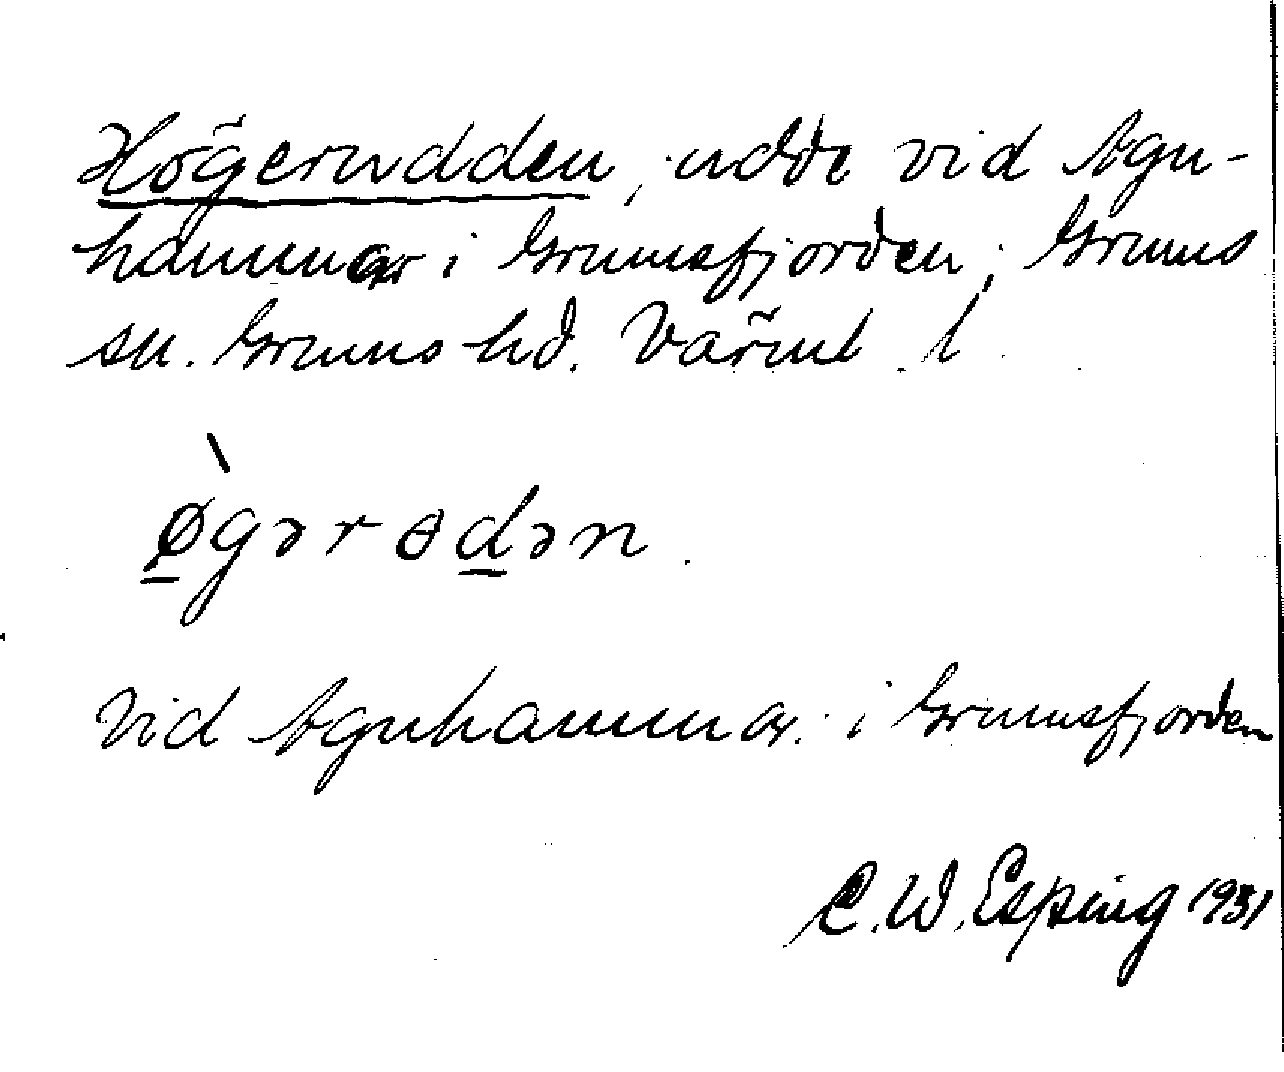 Högerudden, udde vid Agn-
hammar i Grumsfjorden, Grums
sn. Grums hd. Värml. l.
ø̀gərɵdən.
Vid Agnhammar i Grumsfjorden
C. W. Esping 1931